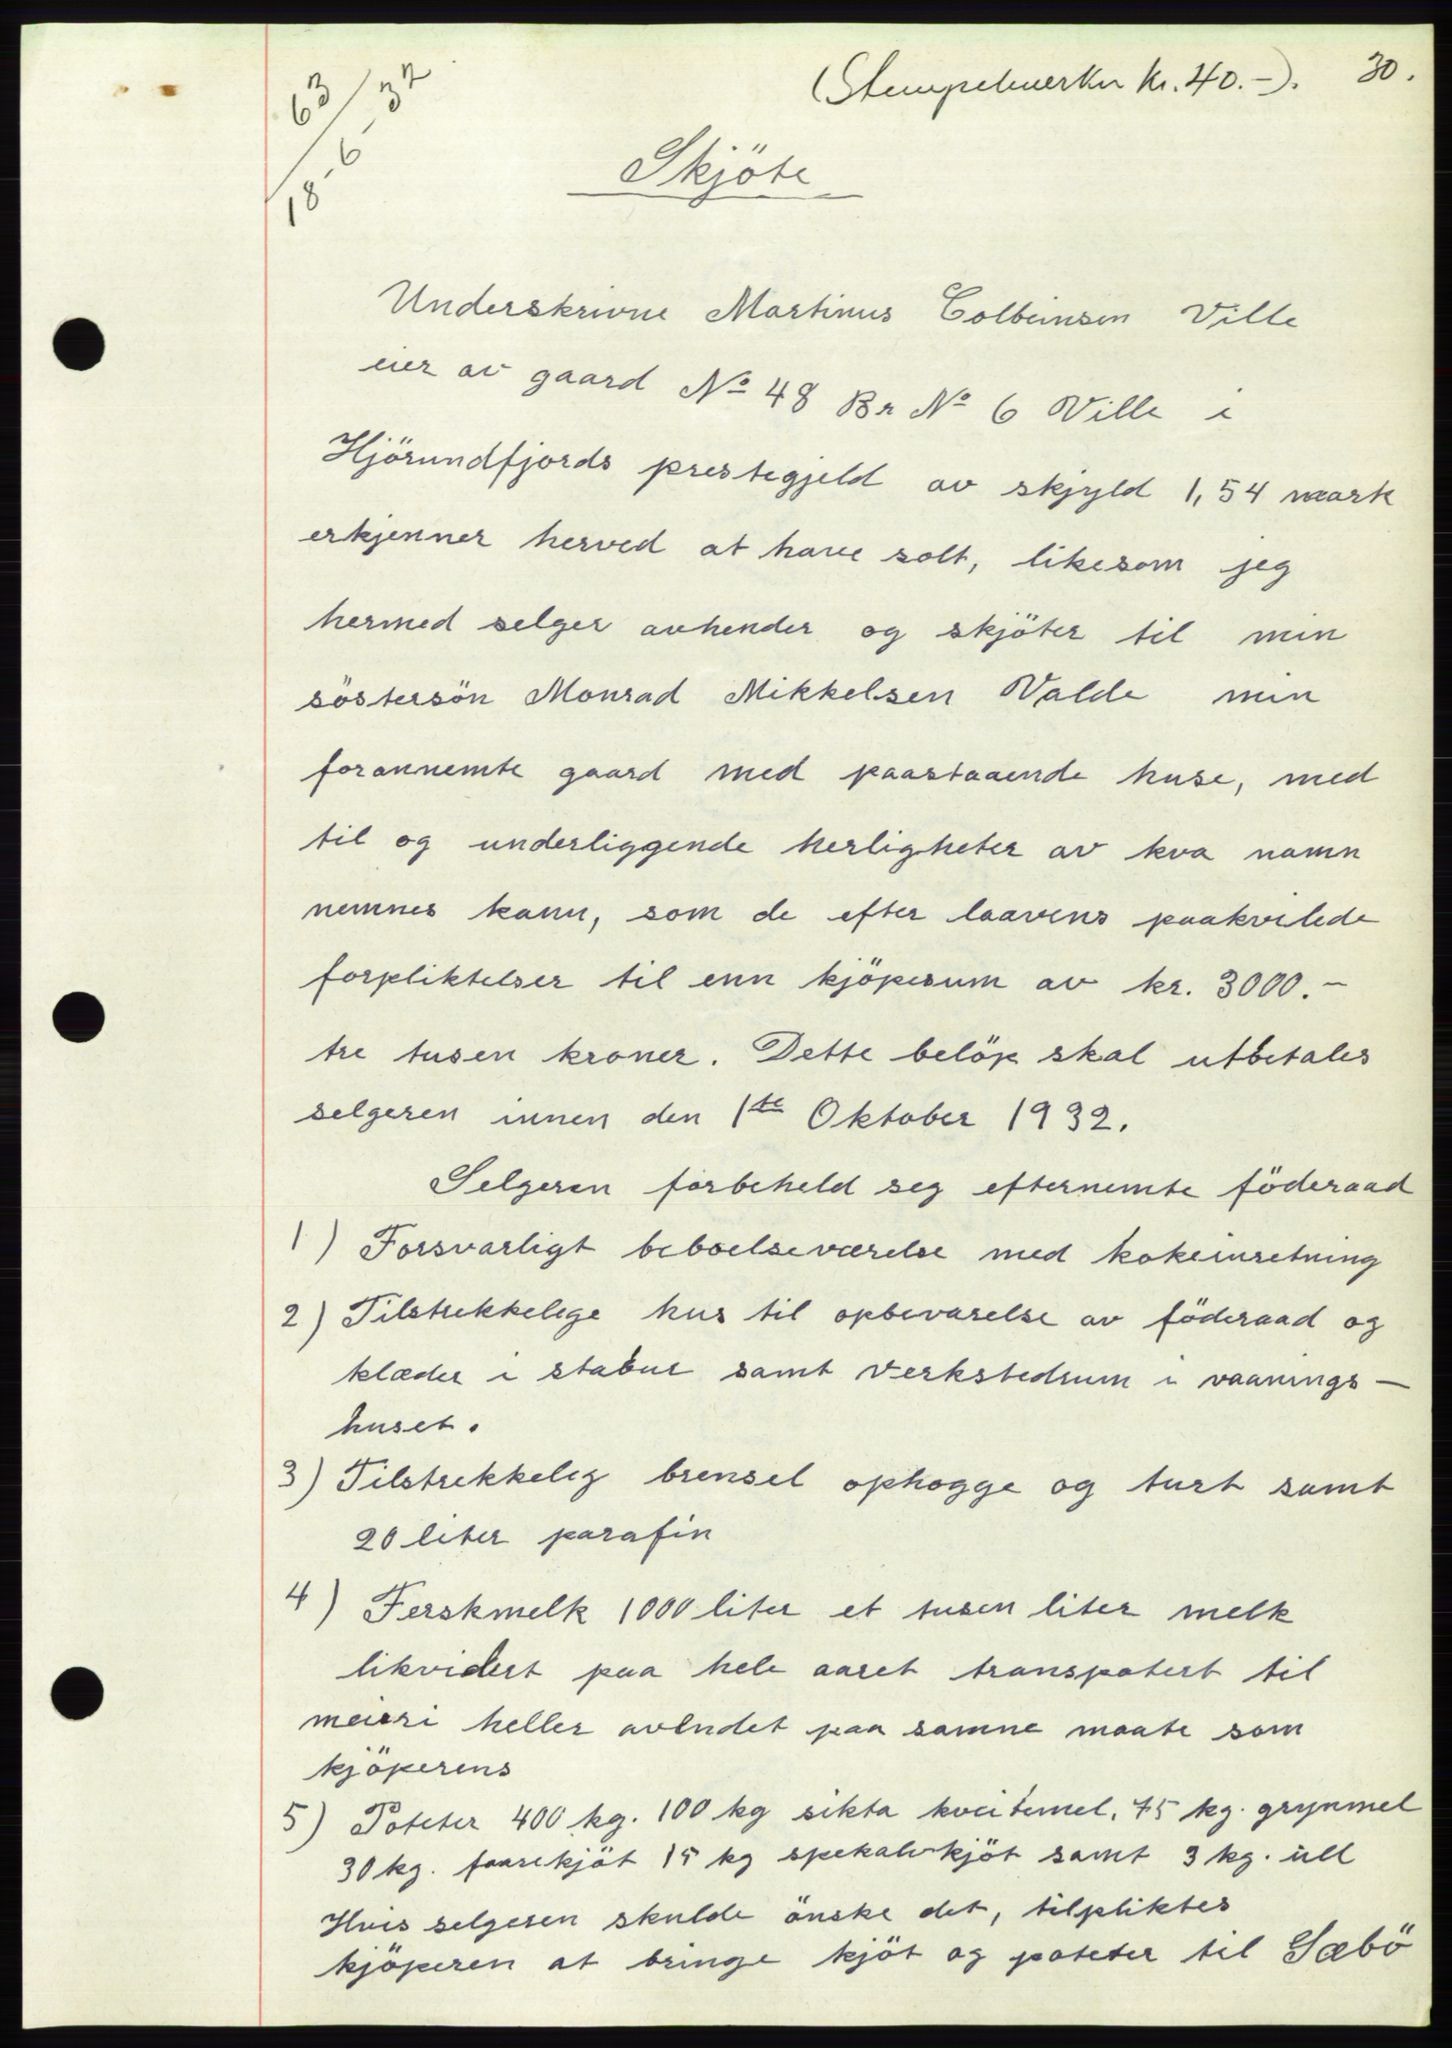 30.
(Stempelmerker Kr. 40.-).
63/18-6-32
Skjöte
Underskrivne Martinus Colbeinsen Ville
eier av gaard No 48 Br No 6 Ville i
Hjörundfjords prestegjeld av skjyld 1,54 mark
erkjenner herved at have solt, likesom jeg
hermed selger avhender og skjöter til min
söstersön Monrad Mikkelsen Valde min
forannemte gaard med paastaaende huse, med
til og underliggende herligheter av kva namn
nemnes kann, som de efter laavens paakvilede
forpliktelser til enn kjöpesum av kr. 3000.-
tre tusen kroner. Dette belöp skal utbetales
selgeren innen den 1te Oktober 1932.
Selgeren forbeheld seg efternemte föderaad
1) Forsvarligt beboelseværelse med kokeinretning
2) Tilstrekkelige hus til opbevarelse av föderaad og
klæder i stabur samt verkstedrum i vaanings-
huset.
3) Tilstrekkelig brensel ophogge og turt samt
20 liter parafin
4) Ferskmelk 1000 liter et tusen liter melk
likvidert paa hele aaret transpotert til
meieri heller avendet paa samne maate som
kjöperens
5) Poteter 400 kg. 100 kg sikta kveitemel, 75 kg. grynmel
30 kg. faarekjöt 15 kg spekalvkjöt samt 3 kg. ull
Hvis selgeren skulde önske det, tilpliktes
kjöperen at bringe kjöt og poteter til Sæbö